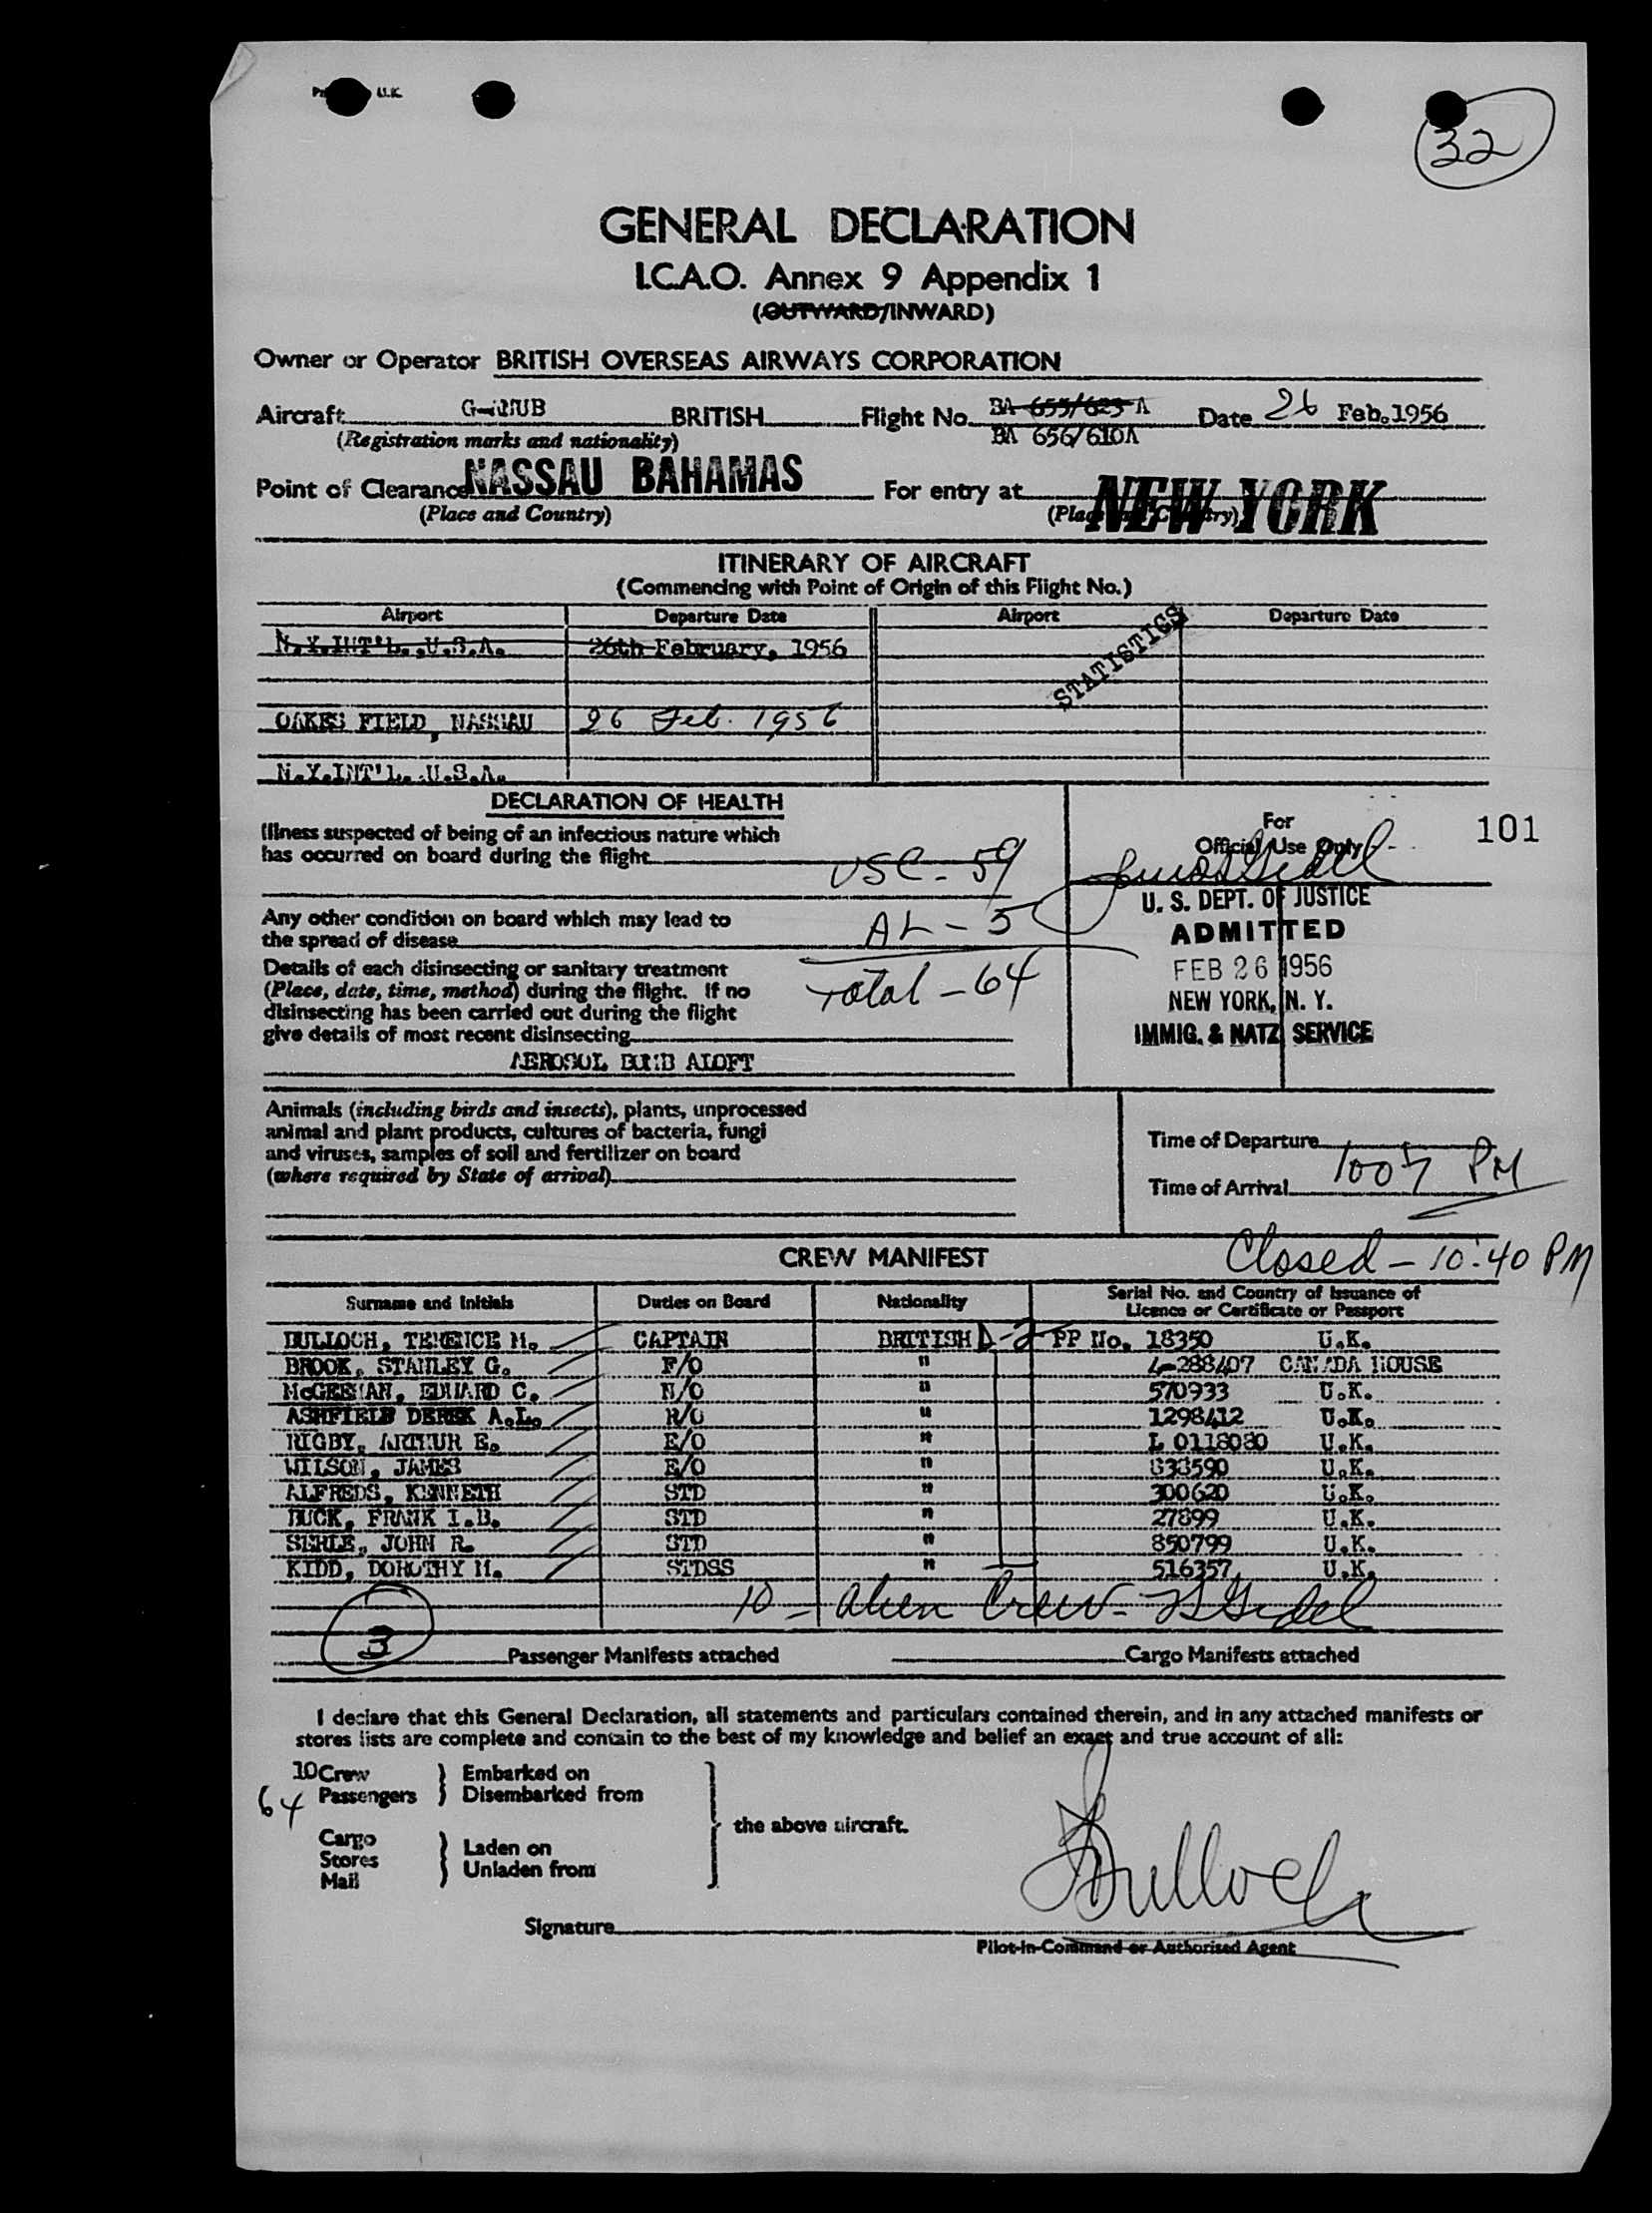 U.K.
32
GENERAL DECLARATION
I.C.A.O. Annex 9 Appendix 1
(OUTWARD/INWARD)
Owner or Operator BRITISH OVERSEAS AIRWAYS CORPORATION
Aircraft BRITISH Flight No. BA 655/623 A Date 26 Feb. 1956
(Registration marks and nationality) BA 656/610A
Point of Clearance NASSAU BAHAMAS For entry at NEW YORK
(Place and Country) (Place and Country)
ITINERARY OF AIRCRAFT
(Commencing with Point of Origin of this Flight No.)
Airport Departure Date Airport Departure Date
N.Y.INT'L. U.S.A. 26th February, 1956
STATISTICS
OAKES FIELD, NASSAU 26 Feb. 1956
N.Y.INT'L. U.S.A.
DECLARATION OF HEALTH
Illness suspected of being of an infectious nature which
has occurred on board during the flight
USC - 59
Any other condition on board which may lead to
the spread of disease
AL - 5
Details of each disinsecting or sanitary treatment
(Place, date, time, method) during the flight. If no
disinsecting has been carried out during the flight
give details of most recent disinsecting
Total - 64
AEROSOL BOMB ALOFT
For
Official Use Only
101
U. S. DEPT. OF JUSTICE
ADMITTED
FEB 26 1956
NEW YORK, N. Y.
IMMIG. & NATZ SERVICE
Animals (including birds and insects), plants, unprocessed
animal and plant products, cultures of bacteria, fungi
and viruses, samples of soil and fertilizer on board
(where required by State of arrival)
Time of Departure
Time of Arrival 1007 PM
CREW MANIFEST Closed - 10:40 PM
Surname and Initials Duties on Board Nationality Serial No. and Country of Issuance of
Licence or Certificate or Passport
BULLOCH, TERENCE M. CAPTAIN BRITISH D-2 PP No. 18350 U.K.
BROOK, STANLEY G. F/O " 4-288407 CANADA HOUSE
McGEEHAN, EDWARD C. N/O " 570933 U.K.
ASHFIELD DEREK A.L. R/O " 1298412 U.K.
RIGBY, ARTHUR E. E/O " L 0118080 U.K.
WILSON, JAMES E/O " 838590 U.K.
ALFREDS, KENNETH STD " 300620 U.K.
BUCK, FRANK I.B. STD " 27899 U.K.
SERLE, JOHN R. STD " 850799 U.K.
KIDD, DOROTHY M. STDSS " 516357 U.K.
10 - Alien Crew -
3 Passenger Manifests attached Cargo Manifests attached
I declare that this General Declaration, all statements and particulars contained therein, and in any attached manifests or
stores lists are complete and contain to the best of my knowledge and belief an exact and true account of all:
10 Crew Embarked on
64 Passengers Disembarked from
the above aircraft.
Cargo
Stores Laden on
Mail Unladen from
Bulloch
Signature
Pilot-in-Command or Authorised Agent